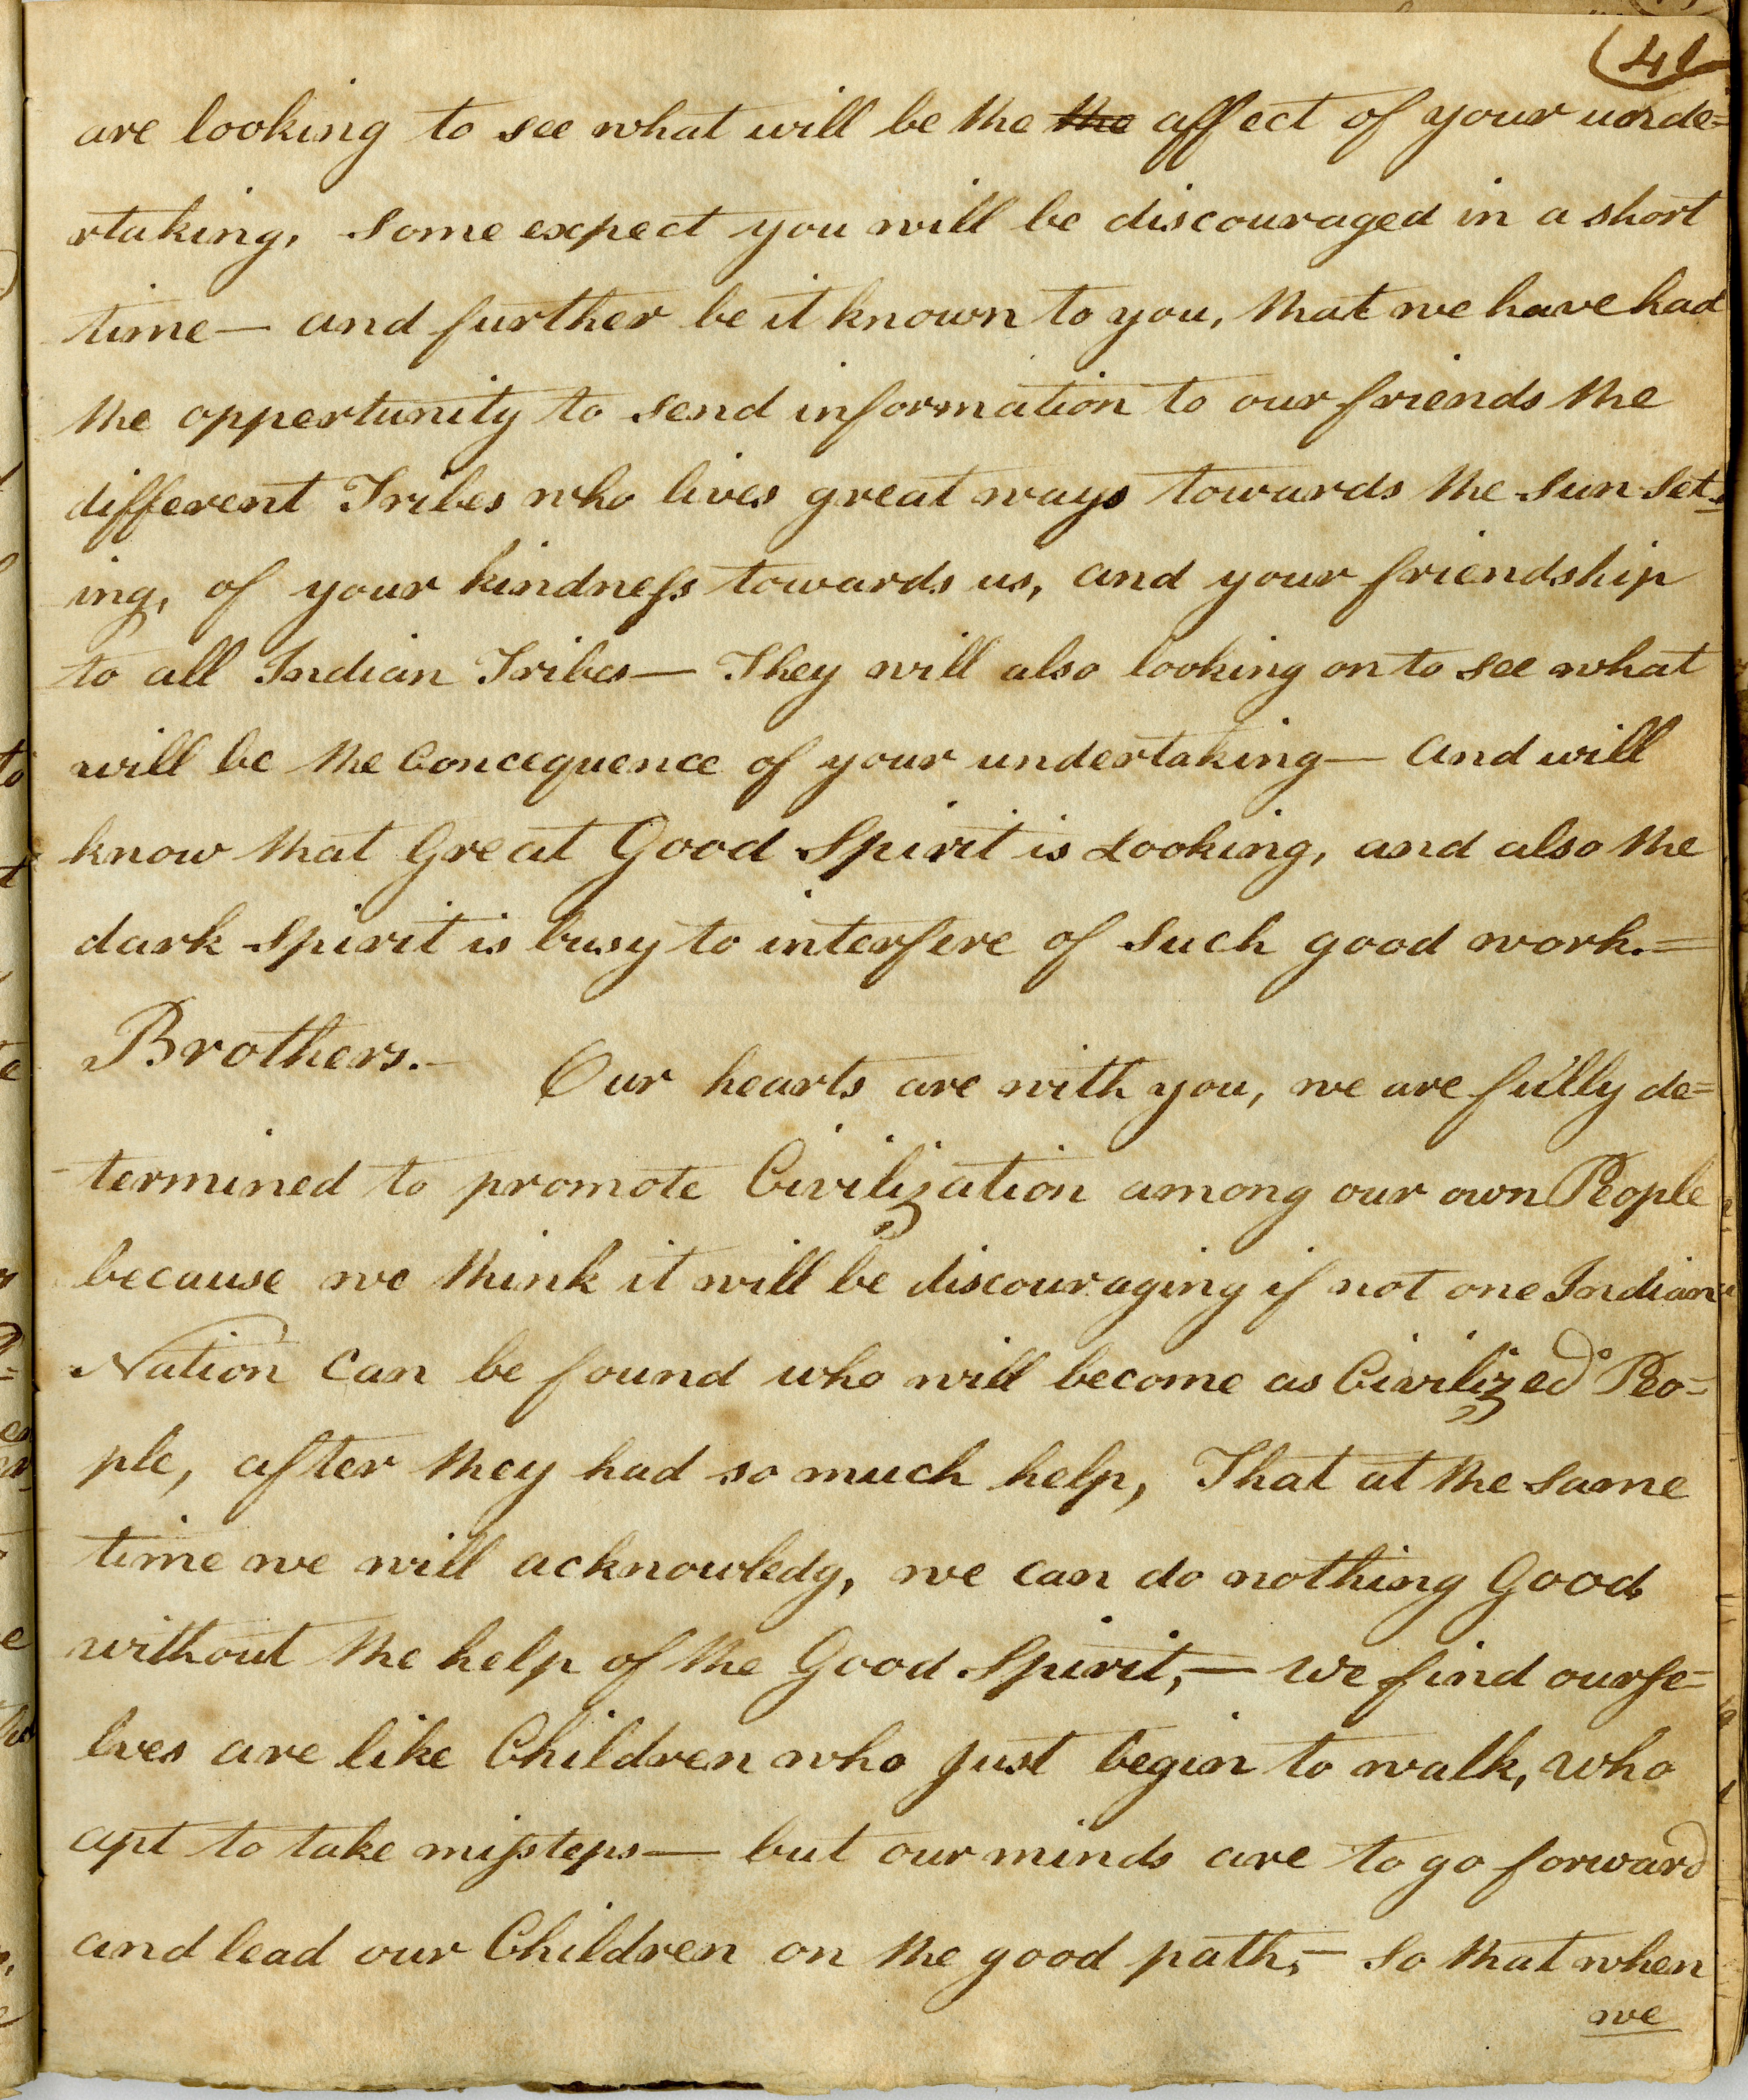 41
are looking to see what will be the the affect of your unde=
rtaking, some expect you will be discouraged in a short
time— and further be it known to you, that we have had
the oppertunity to send information to our friends the
different Tribes who lives great ways towards the sun set-
ing, of your kindness towards us, and your friendship
to all Indian Tribes— They will also looking on to see what
will be the Concequence of your undertaking— and will
know that Great Good Spirit is Looking, and also the
dark Spirit is busy to interfere of such good work.=
Brothers.—
Our hearts are with you, we are fully de=
-termined to promote Civilization among our own People
because we think it will be discouraging if not one Indian
Nation can be found who will become as Civilized Peo=
ple, after they had so much help, That at the same
time we will acknowledg, we can do nothing Good
without the help of the Good Spirit,— we find ourse=
lves are like Children who just begin to walk, who
apt to take missteps— but our minds are to go forward
and lead our Children on the good path,— so that when
we